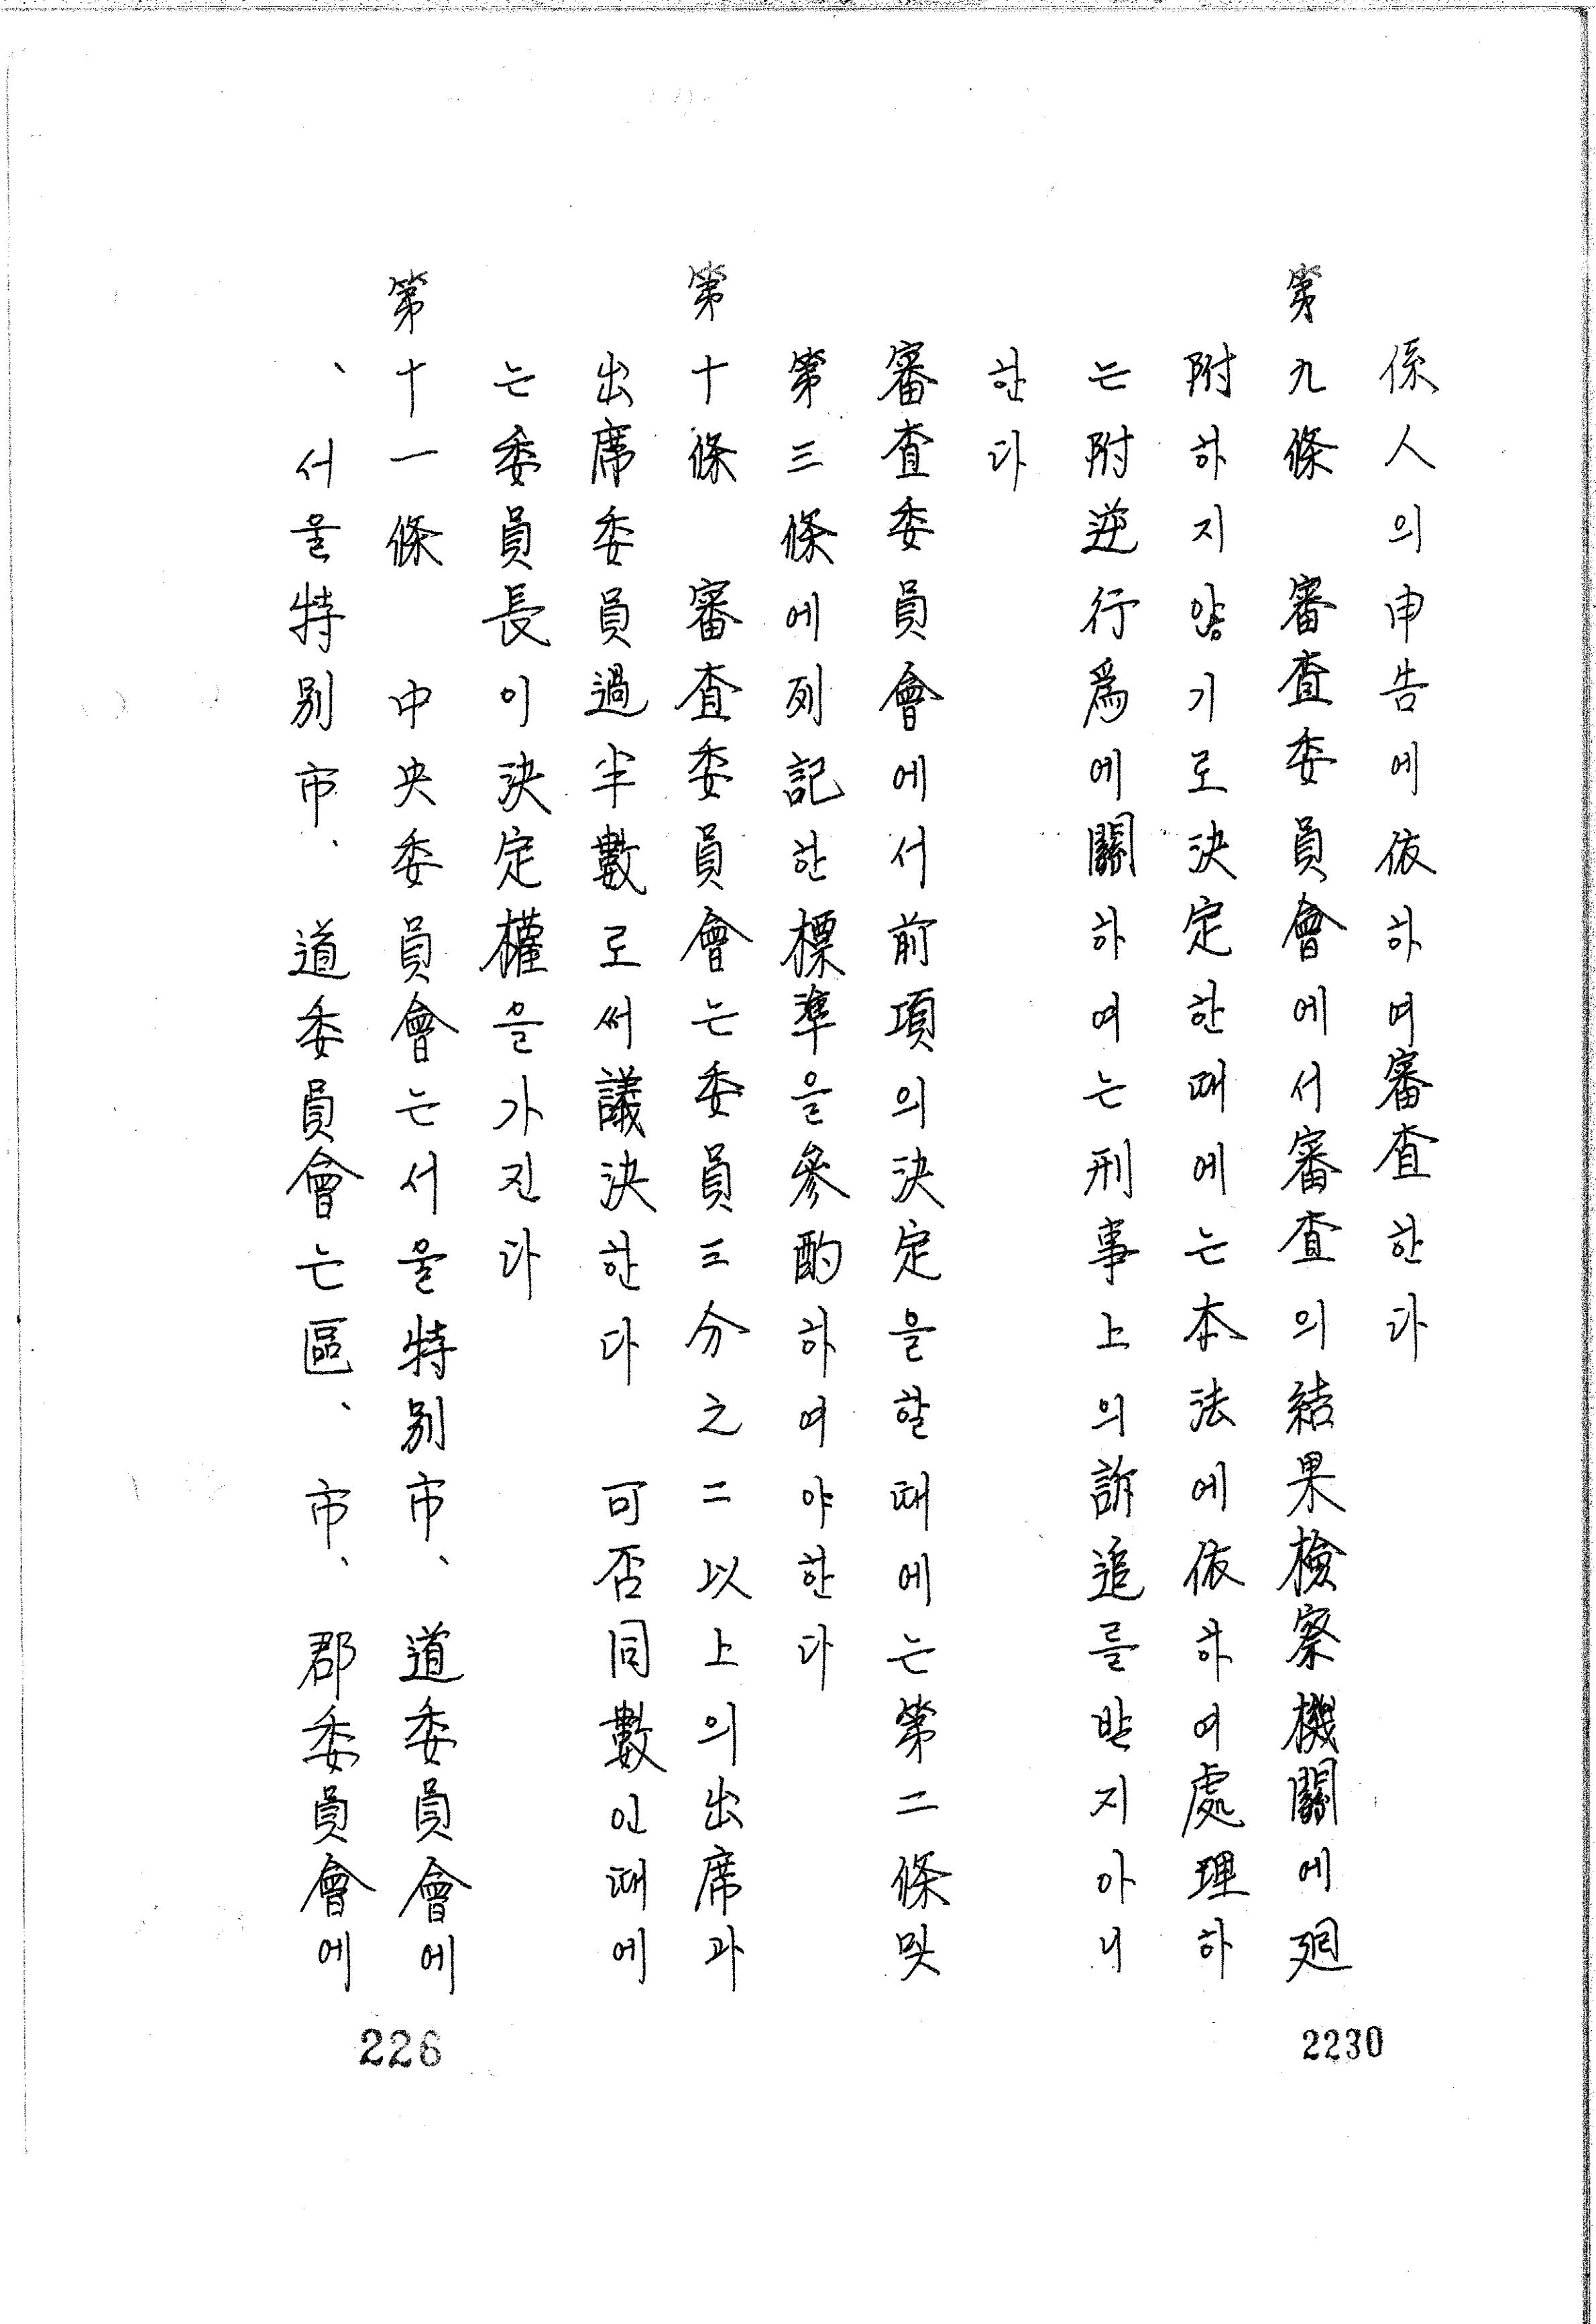 係人의申告에依하여審査한다
第九條 審査委員會에서審査의結果檢察機關에廻
附하지않기로決定한때에는本法에依하여處理하
는附逆行爲에關하여는刑事上의訴追를받지아니
한다
審査委員會에서前項의決定을할때에는第二條및
第三條에列記한標準을參酌하여야한다
第十條 審査委員會는委員三分之二以上의出席과
出席委員過半數로써議決한다 可否同數인때에
는委員長이決定權을가진다
第十一條 中央委員會는서울特別市、道委員會에
、서울特別市、道委員會는區、市、郡委員會에
226
2230